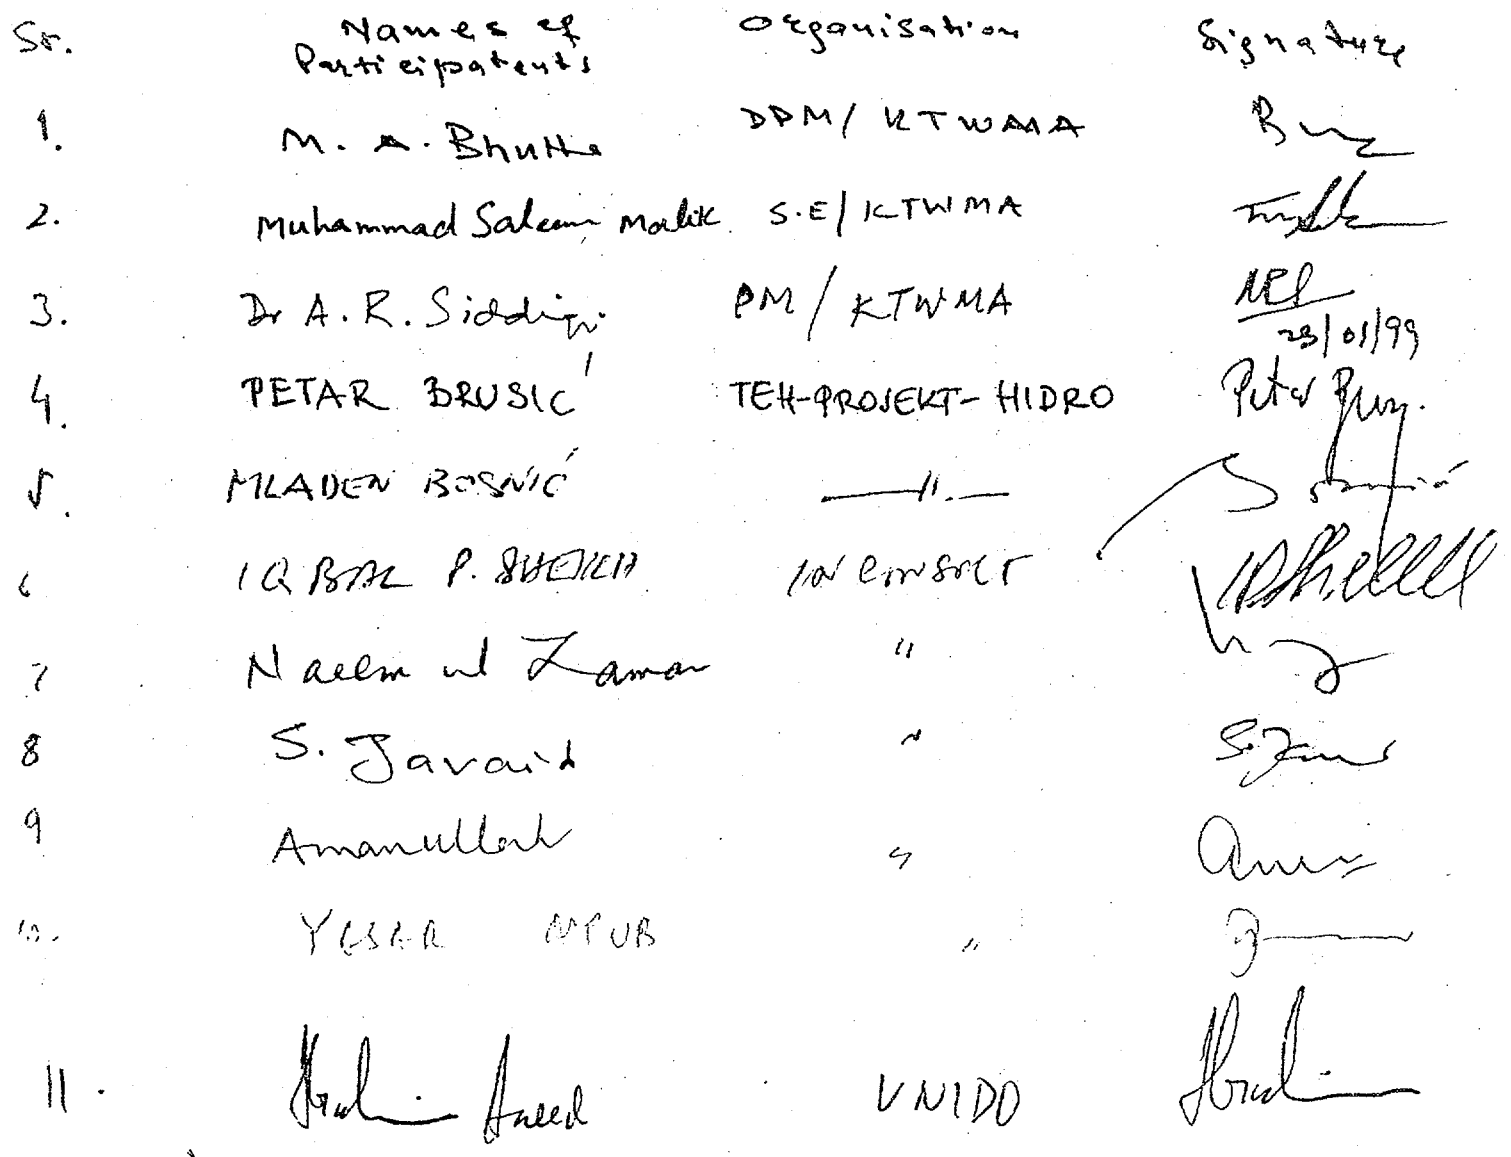 Sr. Names of Participatents Organisation Signature
1. M. A. Bhutta DPM/ KTWMA
2. Muhammad Saleem Malik S.E/ KTWMA
3. Dr A. R. Siddiqi PM/ KTWMA
23/01/99
4. PETAR BRUSIĆ TEH-PROJEKT-HIDRO Petar
5. MLADEN BOSNIĆ —"—
6 IQBAL P. SHEIKH INCONSULT
7 Naeem ul Zaman "
8 S. Javaid "
9 Amanullah "
10. "
11. Ibrahim UNIDO Ibrahim